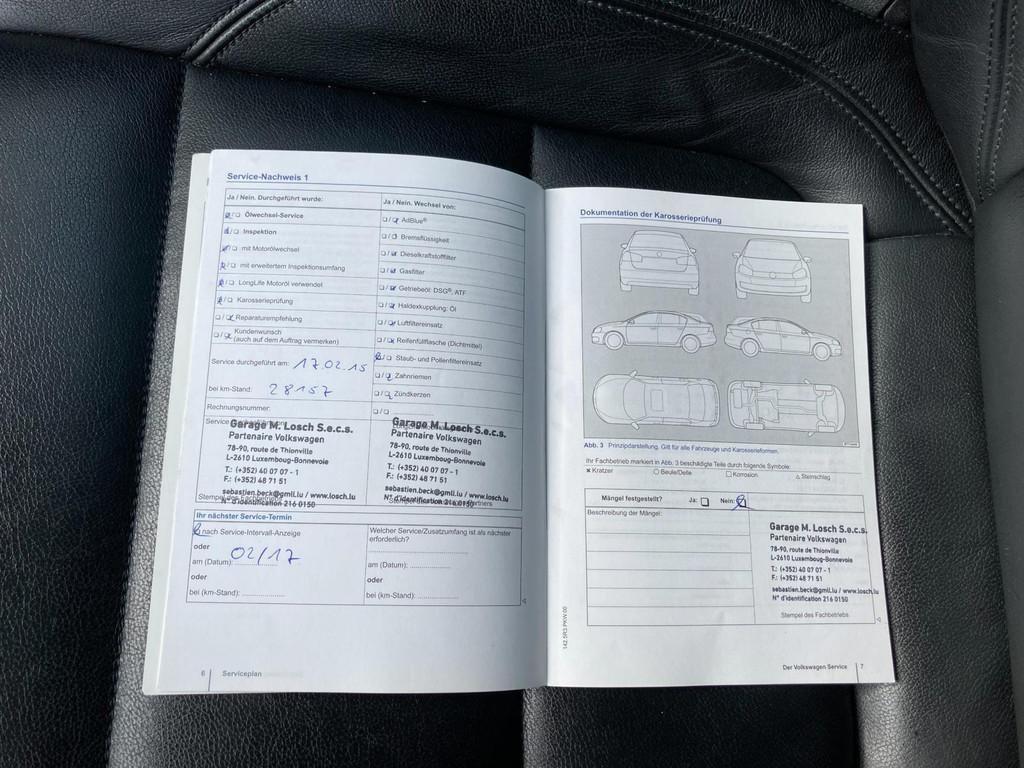 Service-Nachweis 1
Ja / Nein. Durchgeführt wurde:
Ja / Nein. Wechsel von:
Ölwechsel-Service
Inspektion
mit Motorölwechsel
mit erweitertem Inspektionsumfang
LongLife Motoröl verwendet
Karosserieprüfung
Reparaturempfehlung
Kundenwunsch
(auch auf dem Auftrag vermerken)
AdBlue®
Bremsflüssigkeit
Dieselkraftstofffilter
Gasfilter
Getriebeöl: DSG®, ATF
Haldexkupplung: Öl
Luftfiltereinsatz
Reifenfüllflasche (Dichtmittel)
Staub- und Pollenfiltereinsatz
Zahnriemen
Zündkerzen
Service durchgeführt am: 17.02.15
bei km-Stand: 28157
Rechnungsnummer:
Service
Garage M. Losch S.e.c.s.
Partenaire Volkswagen
78-90, route de Thionville
L-2610 Luxemboug-Bonnevoie
T.: (+352) 40 07 07 - 1
F.: (+352) 48 71 51
sebastien.beck@gmll.lu / www.losch.lu
N° d'identification 216 0150
Garage M. Losch S.e.c.s.
Partenaire Volkswagen
78-90, route de Thionville
L-2610 Luxemboug-Bonnevoie
T.: (+352) 40 07 07 - 1
F.: (+352) 48 71 51
sebastien.beck@gmll.lu / www.losch.lu
N° d'identification 216 0150
Ihr nächster Service-Termin
nach Service-Intervall-Anzeige
oder
am (Datum): 02/17
oder
bei (km-Stand):
Welcher Service/Zusatzumfang ist als nächster
erforderlich?
am (Datum):
oder
bei (km-Stand):
6 Serviceplan
Dokumentation der Karosserieprüfung
Abb. 3 Prinzipdarstellung. Gilt für alle Fahrzeuge und Karosserieformen.
Ihr Fachbetrieb markiert in Abb. 3 beschädigte Teile durch folgende Symbole:
x Kratzer ○ Beule/Delle □ Korrosion △ Steinschlag
Mängel festgestellt? Ja: Nein:
Beschreibung der Mängel:
Garage M. Losch S.e.c.s.
Partenaire Volkswagen
78-90, route de Thionville
L-2610 Luxemboug-Bonnevoie
T.: (+352) 40 07 07 - 1
F.: (+352) 48 71 51
sebastien.beck@gmll.lu / www.losch.lu
N° d'identification 216 0150
Stempel des Fachbetriebs
142.5R3.PKW.00
Der Volkswagen Service 7